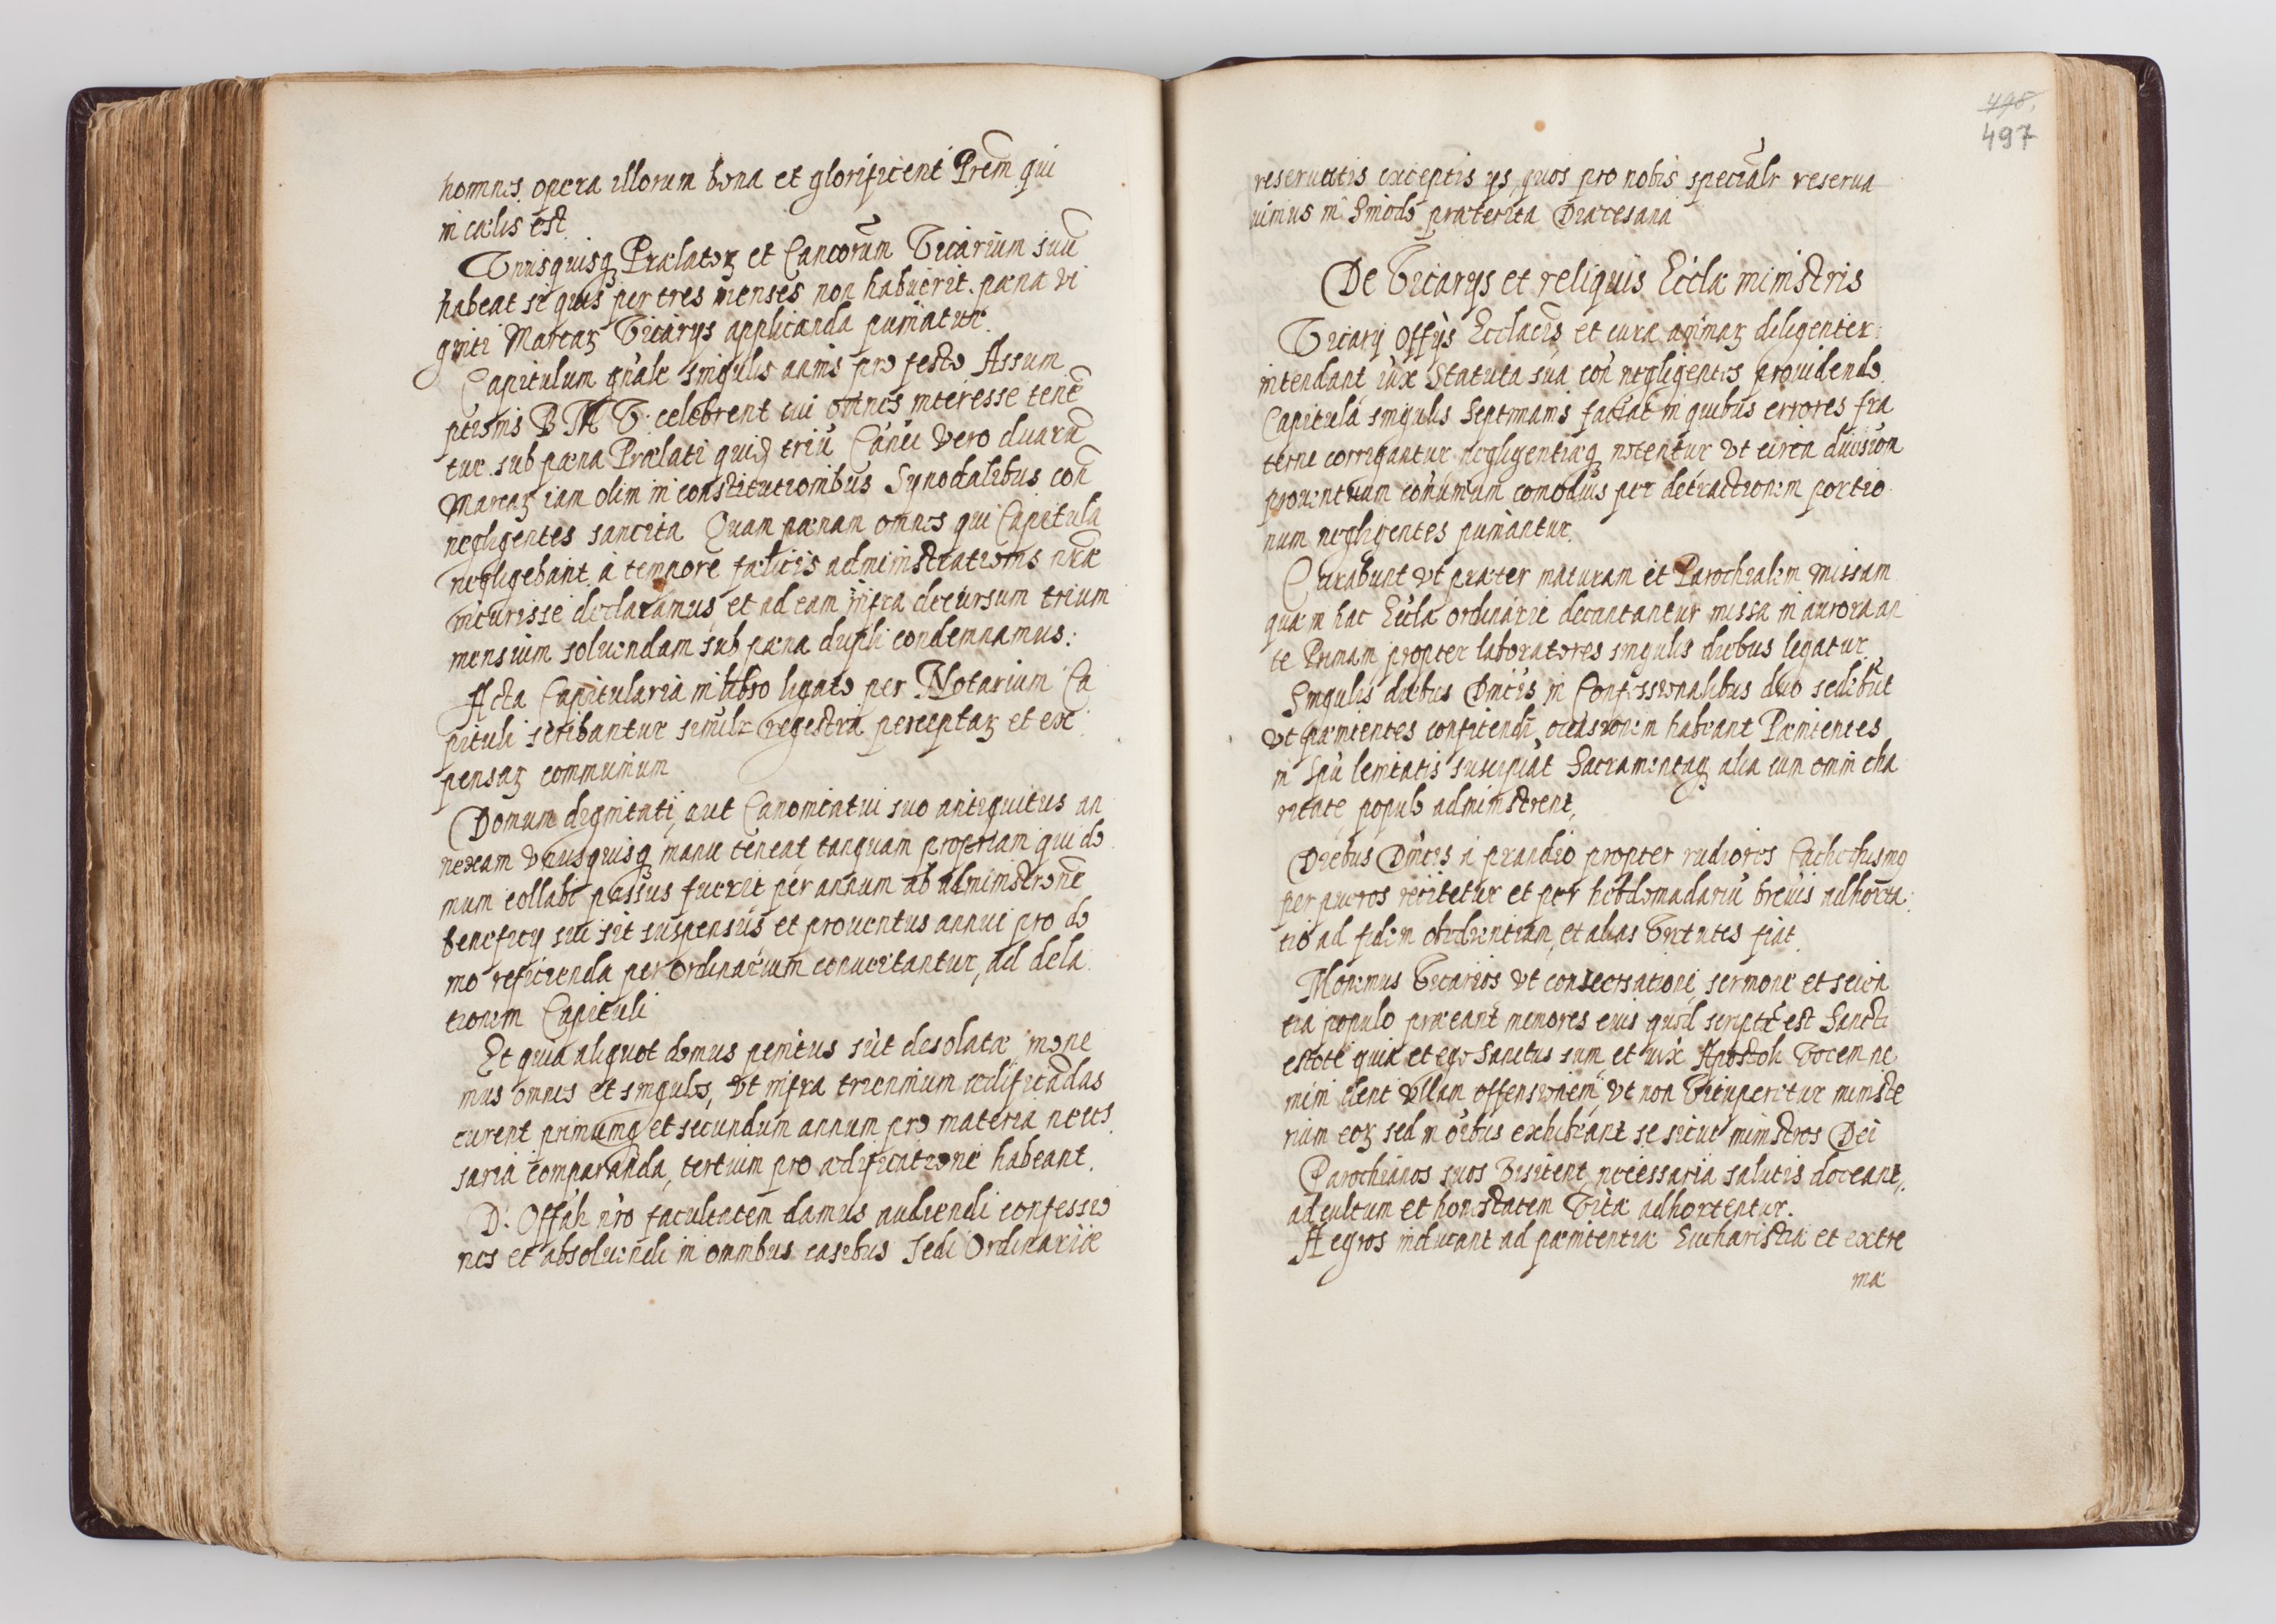 homines opera illorum bona et glorificent Prem qui
in cælis est
Vnusquisq Prælatoꝝ et Cancorum Vicarium suū
habeat si quis per tres menses non habuerit. pæna vi
ginti Marcaꝝ Vicarys applicanda puniatur.
Capitulum gnale singulis annis pro festo Assum
ptionis B M V. celebrent cui omnes interesse tenē
tur sub pæna Prælati quid triū Canci vero duarū
Marcaꝝ iam olim in constitutionibus Synodalibus con
negligentes sancita Quam pænam omnes qui Capitula
negligebant à tempore fælicis administrationis nræ
incurisse declaramus, et ad eam infra decursum trium
mensium soluendam sub pæna dupli condemnamus:
Acta Capitularia in libro ligato per Notarium Ca
pituli scribantur simulr regestra perceptaꝝ et ex
pensaꝝ communium
Domum dignitati, aut Canonicatui suo antiquitus an
nexam vnusquisq manu teneat tanquam propriam qui do
mum collabi passus fuerit per annum ab administrone
beneficy sui sit suspensus et prouentus annui pro do
mo reficienda per Ordinarium conuertantur, ad dela
tionem Capituli
Et quia aliquot domus penitus sūt desolatæ mone
mus omnes et singulos, vt infra triennium ædificādas
curent primumq et secundum annum pro materia neces
saria comparanda, tertium pro ædificatione habeant.
D. Offāli nro facultatem damus audiendi confessio
nes et absoluendi in omnibus casibus Sedi Ordinariæ
498.
497
reseruatis exceptis ys, quos pro nobis specialr reserua
uimus in Sinodo præterita Diæcesana
De Vicarys et reliquis Eccla ministris
Vicary Offys Ecclacis et cura animaꝝ diligenter
intendant iux Statuta sua con negligentes prouidendo
Capitula singulis Septimanis faciāt in quibus errores fra
terne corrigantur negligentiæq notentur vt circa diuision
prouentuum conumum comodius per detractionem portio
num negligentes puniantur.
Curabunt vt præter maturam et Parochialem missam
quæ in hac Eccla ordinarie decantantur missa in aurora an
te Primam propter laboratores singulis diebus legatur
Singulis diebus Dnicis in Confessionalibus duo sedebūt
vt pænitentes confitendi occasionem habeant Pænitentes
in Spū lenitatis suscipiāt Sacramentaq alia cum omni cha
ritate populo administrent,
Diebus Dnicis à prandio propter rudiores Cathechismo
per pueros recitetur et per hebdomadariū breuis adhorta
tio ad fidem obedientiam, et alias Virtutes fiat
Monemus Vicarios vt conuersatione, sermone et scien
tia populo præeant memores eius quod scriptū est Sancti
estote quia et ego Sanctus sum, et iux Apostoli Vocem ne
mini dent vllam offensionem, vt non Vituperetur ministe
rium eoꝝ sed in oibus exhibeant se sicut ministros Dei
Parochianos suos Visitent, necessaria salutis doceant,
ad cultum et honestatem Vitæ adhortentur.
Aegros inducant ad pænitentiæ Eucharistiæ et extre
mæ